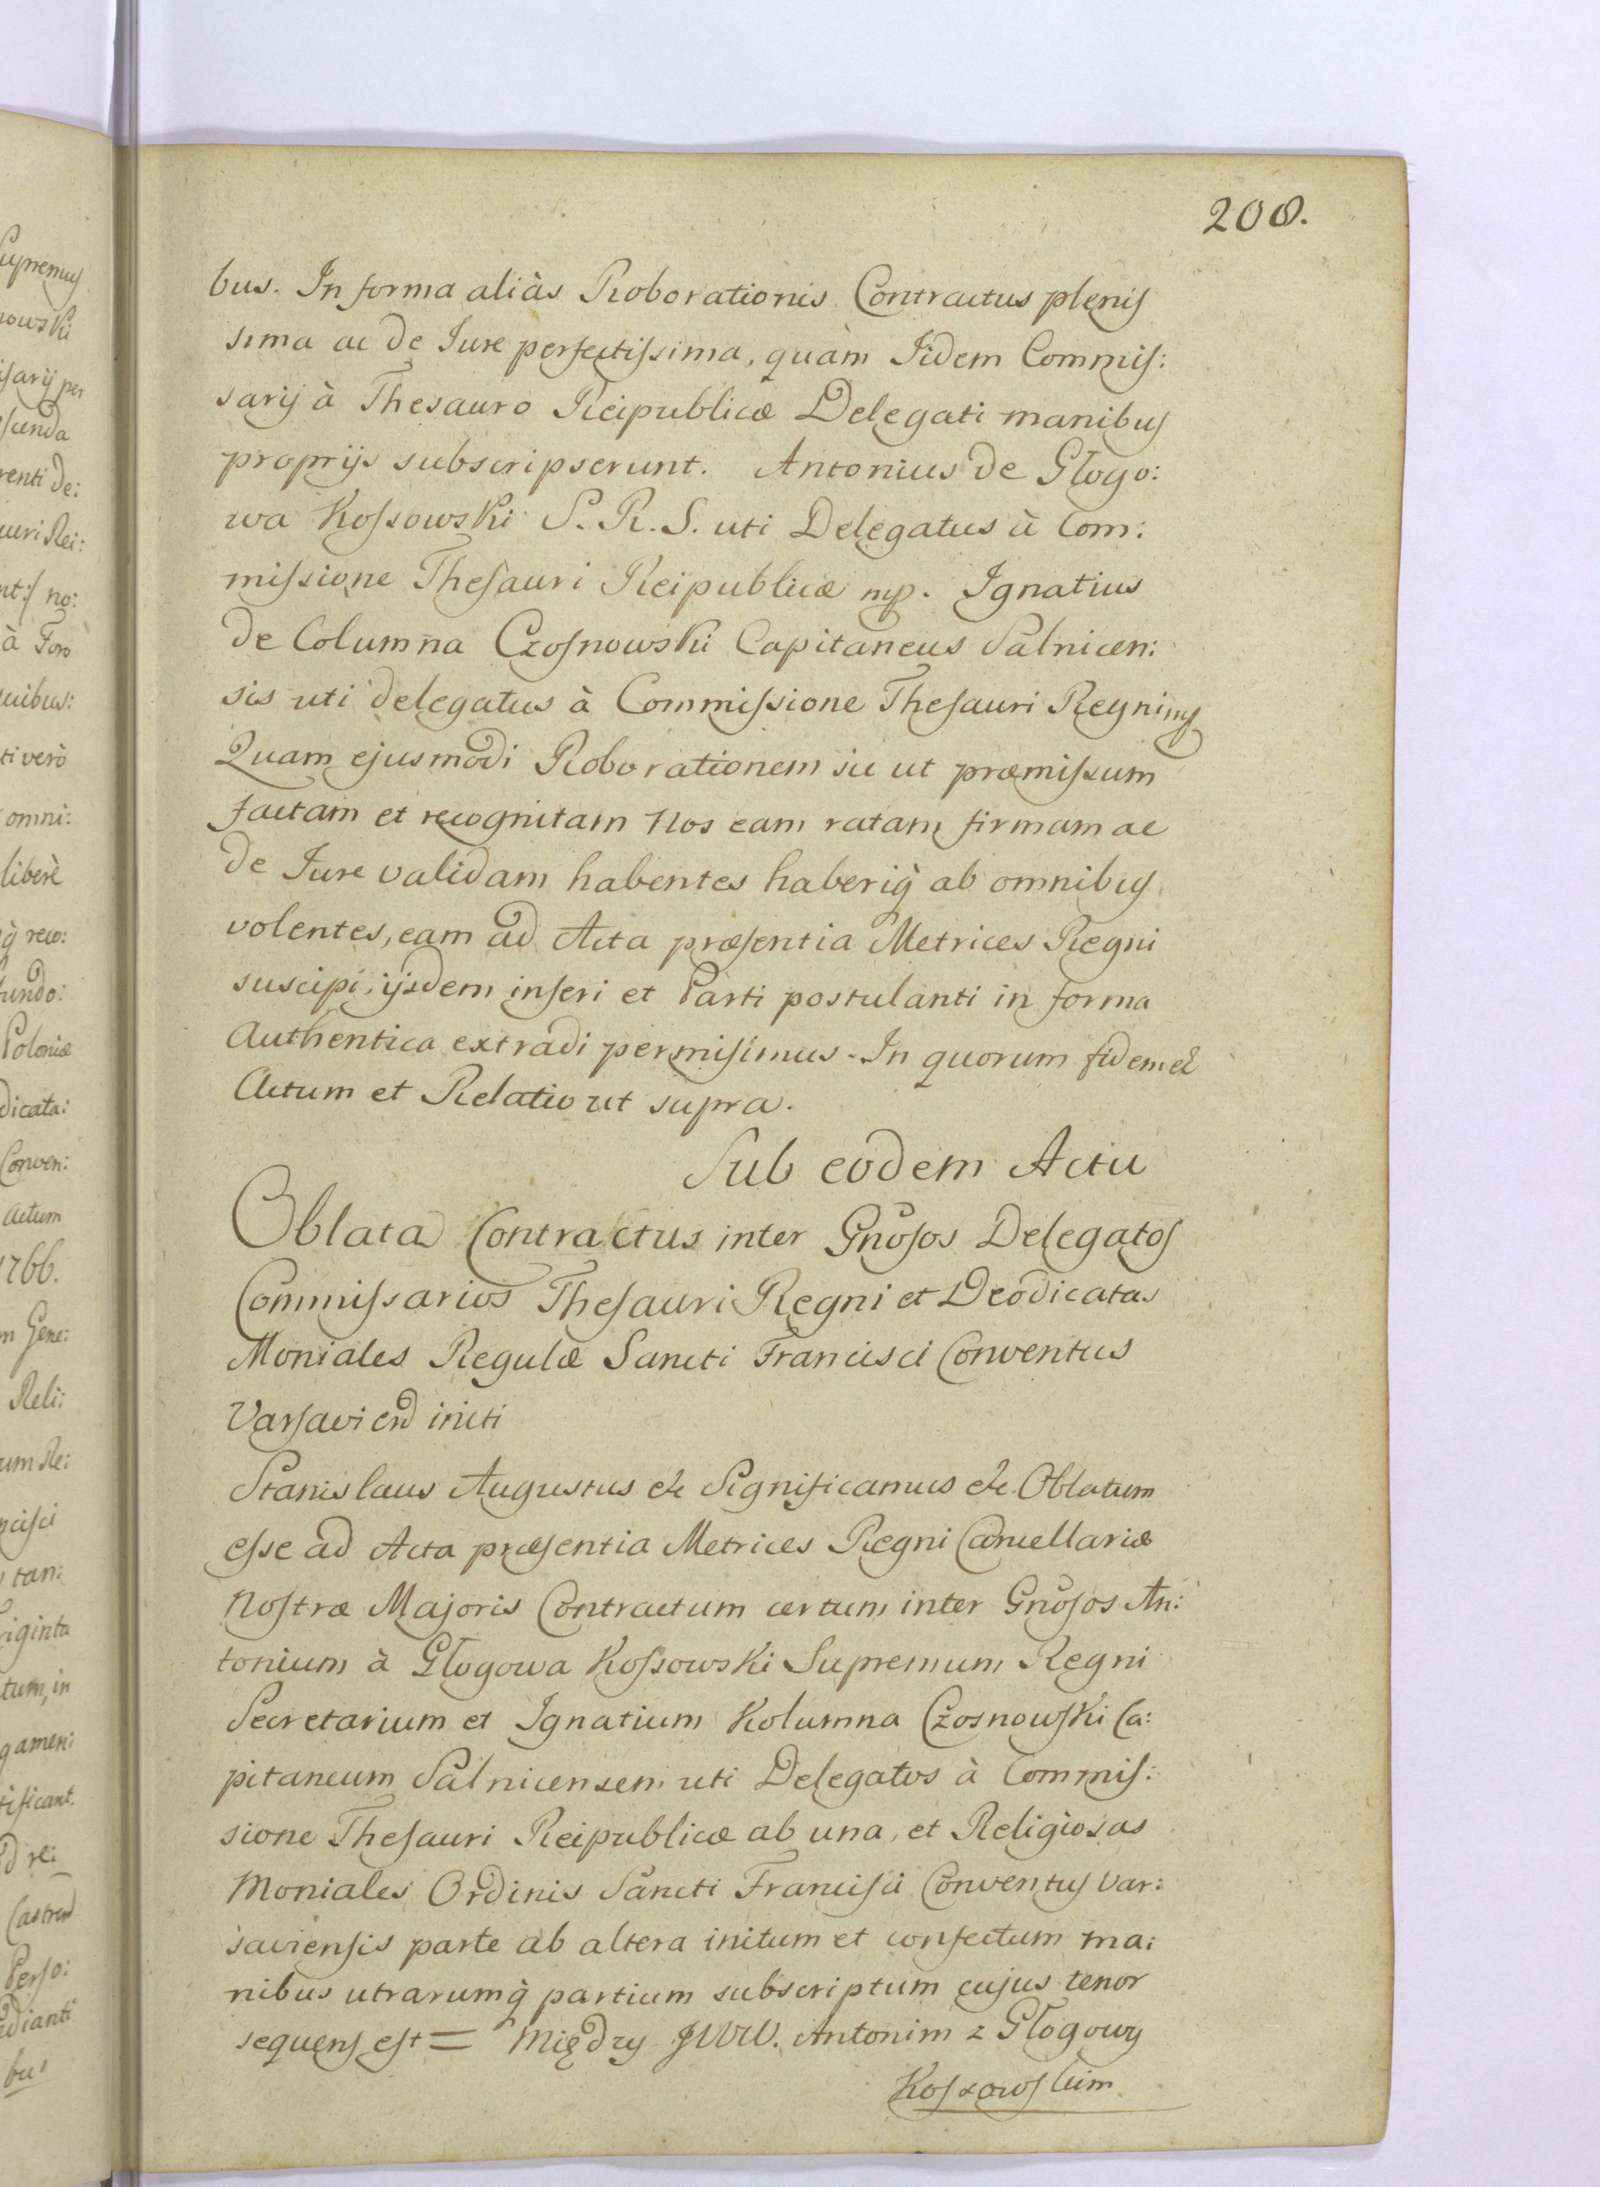 208.
bus. In forma aliàs Roborationis Contractus plenis
sima ac de Jure perfectissima, quàm Iidem Commis:
sarij à Thesauro Reipublicæ Delegati manibus
proprijs subscripserunt. Antonius de Głogo:
wa Kossowski S. R. S. uti Delegatus à Com:
missione Thesauri Reipublicæ mp. Ignatius
de Columna Czosnowski Capitaneus Salnicen:
sis uti delegatus à Commissione Thesauri Regni mp
Quam ejusmodi Roborationem sic ut præmissum
factam et recognitam Nos eam ratam firmam ac
de Jure validam habentes haberiq̀ ab omnibus
volentes, eam ad Acta præsentia Metrices Regni
suscipi, ijsdem inseri et Parti postulanti in forma
Authentica extradi permisimus. In quorum fidem &
Actum et Relatio ut supra.
Sub eodem Actu
Oblata Contractus inter Gnosos Delegatos
Commissarios Thesauri Regni et Deodicatas
Moniales Regulæ Sancti Francisci Conventus
Varsavien initi
Stanislaus Augustus &c Significamus &c. Oblatum
esse ad Acta præsentia Metrices Regni Cancellariæ
Nostræ Majoris Contractum certum inter Gnosos An:
tonium à Głogowa Kossowski Supremum Regni
Secretarium et Ignatium Kolumna Czosnowski Ca:
pitaneum Salnicensem uti Delegatos à Commis:
sione Thesauri Reipublicæ ab una, et Religiosas
Moniales Ordinis Sancti Francisci Conventus Var:
saviensis parte ab altera initum et confectum ma:
nibus utrarumq̀ partium subscriptum cujus tenor
sequens est = Między JWW. Antonim z Głogowy
Kossowskim